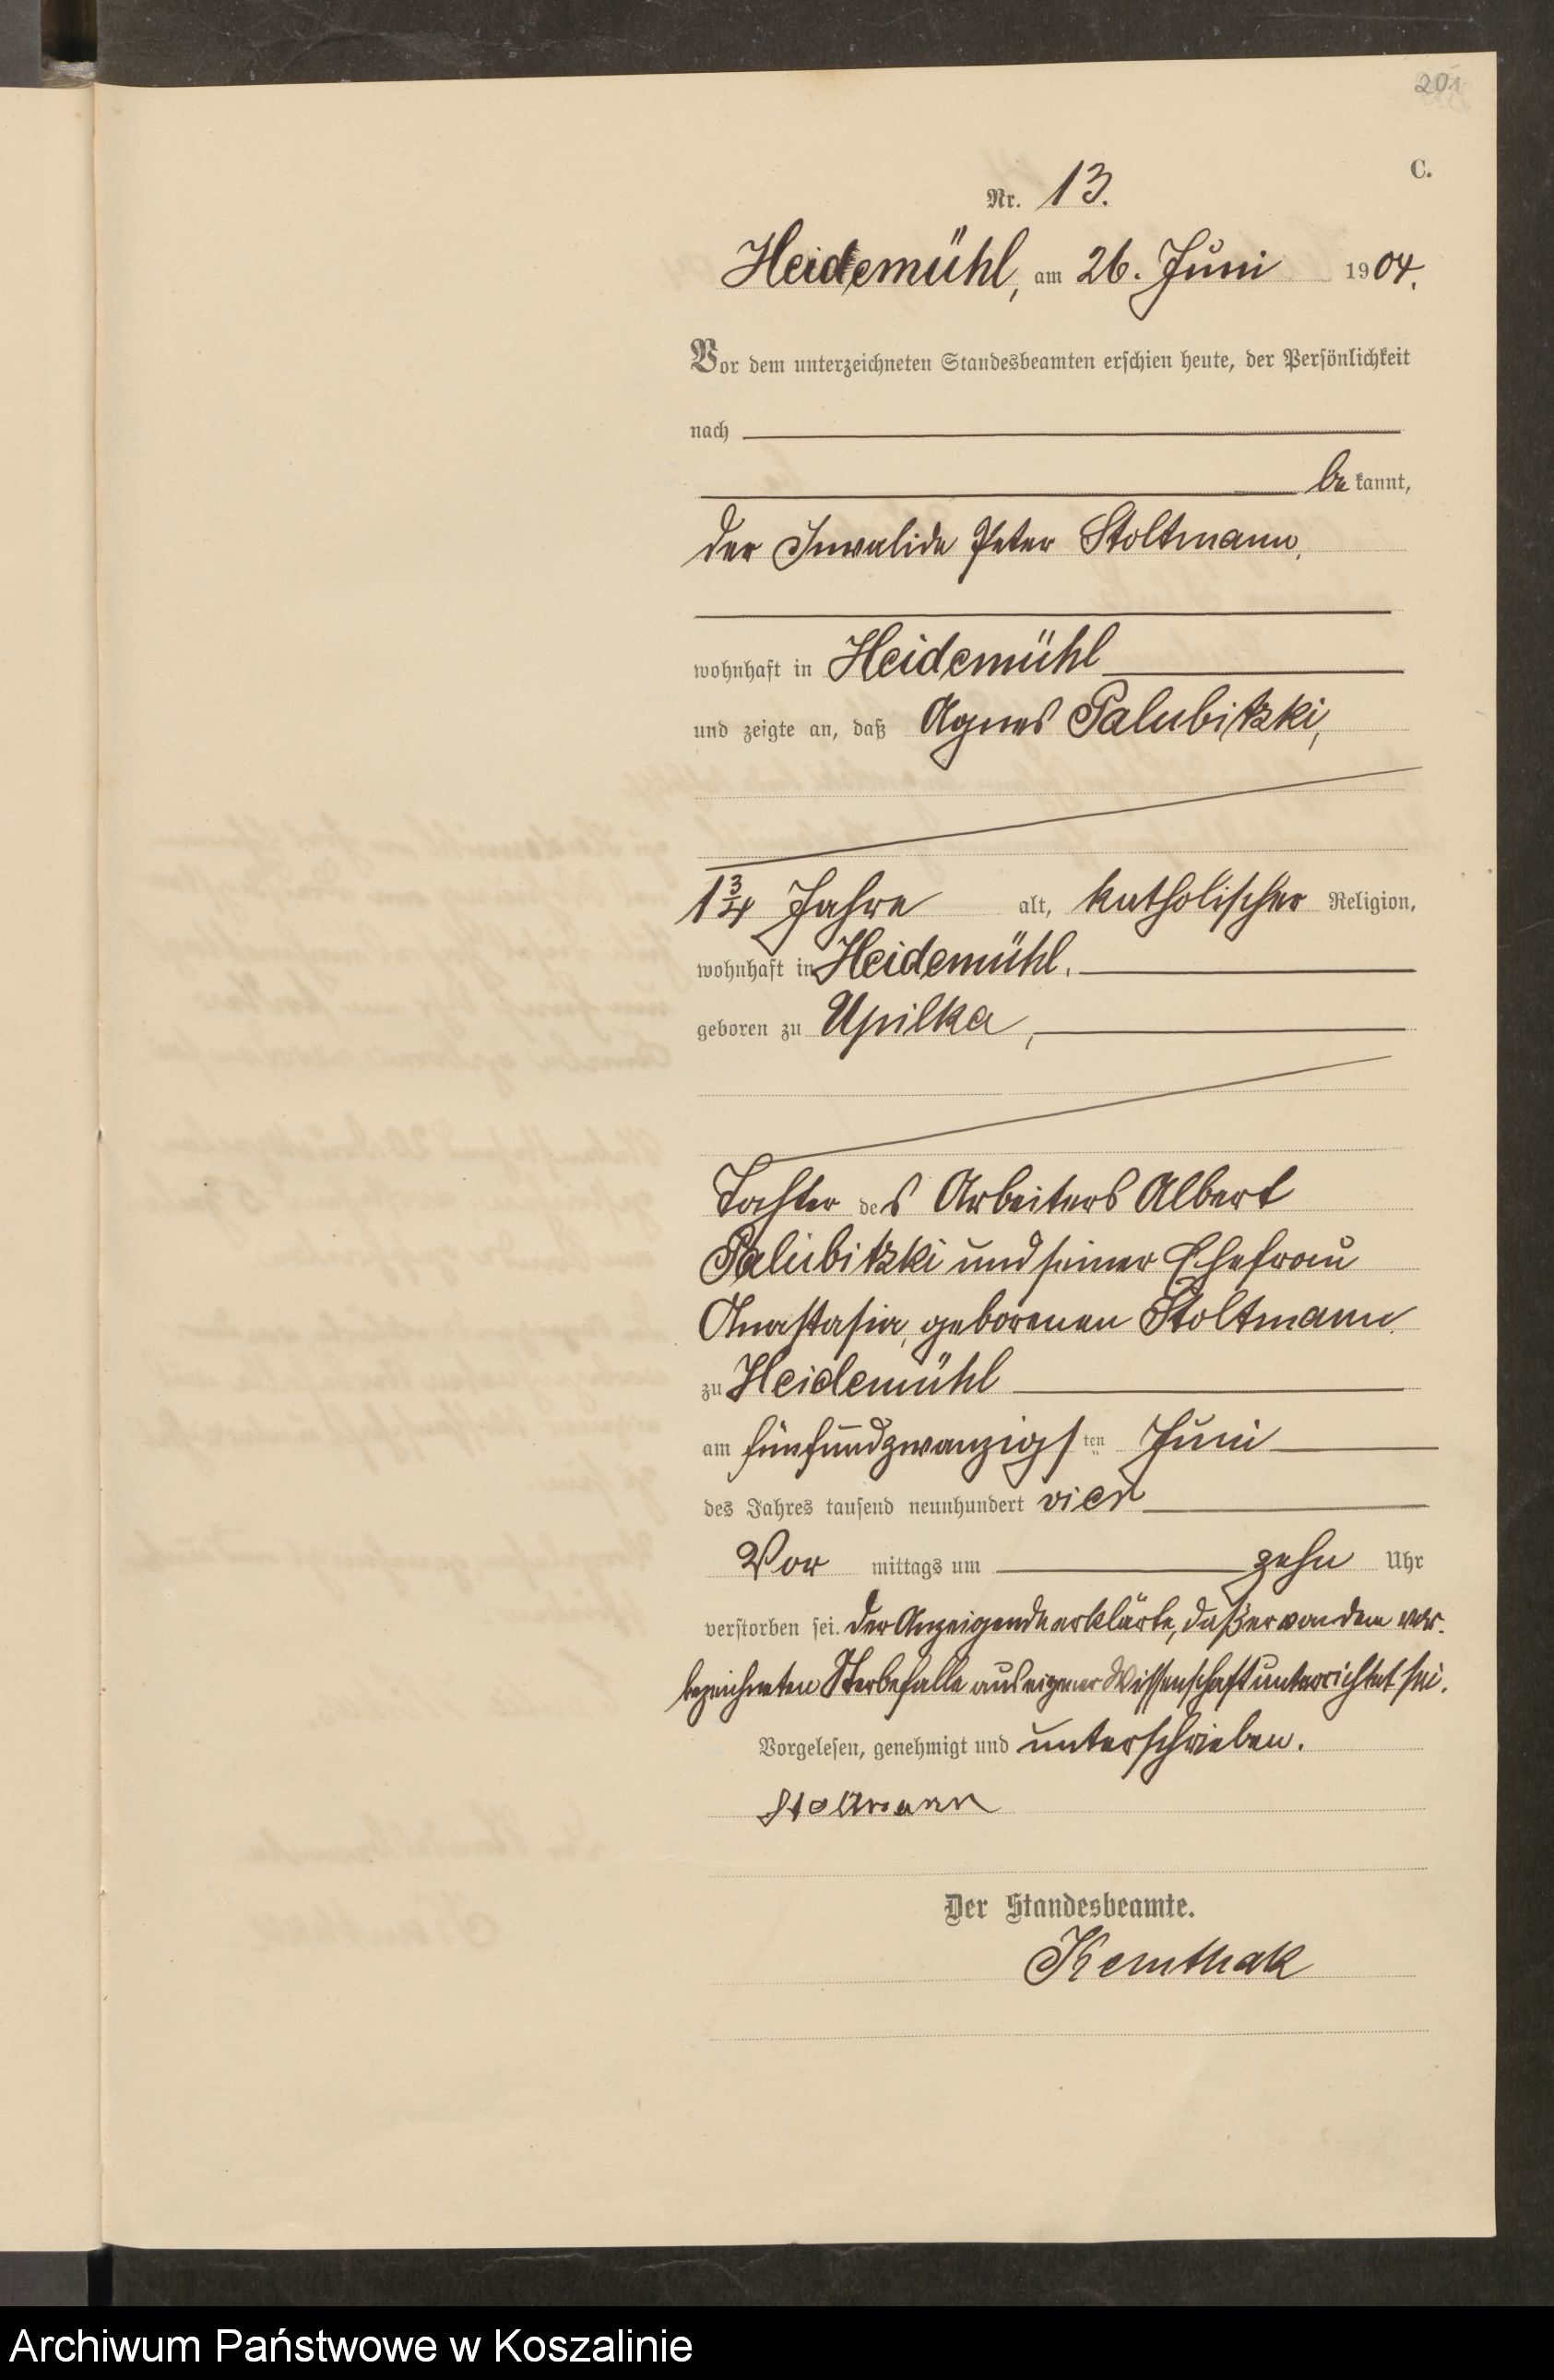 201
C.
Nr. 13.
Heidemühl, am 26. Juni 1904.
Vor dem unterzeichneten Standesbeamten erschien heute, der Persönlichkeit
nach
be kannt,
der Invalide Peter Stoltmann,
wohnhaft in Heidemühl
und zeigte an, daß Agnes Palubitzki,
1 3/4 Jahre alt, katholischer Religion,
wohnhaft in Heidemühl,
geboren zu Upilka,
Tochter des Arbeiters Albert
Palubitzki und seiner Ehefrau
Anastasia, geborenen Stoltmann
zu Heidemühl
am fünfundzwanzigsten Juni
des Jahres tausend neunhundert vier
Vor mittags um zehn Uhr
verstorben sei. Der Anzeigende erklärte, daß er von dem vor-
bezeichneten Sterbefalle aus eigener Wissenschaft unterrichtet sei.
Vorgelesen, genehmigt und unterschrieben.
Stoltmann
Der Standesbeamte.
Archiwum Państwowe w Koszalinie